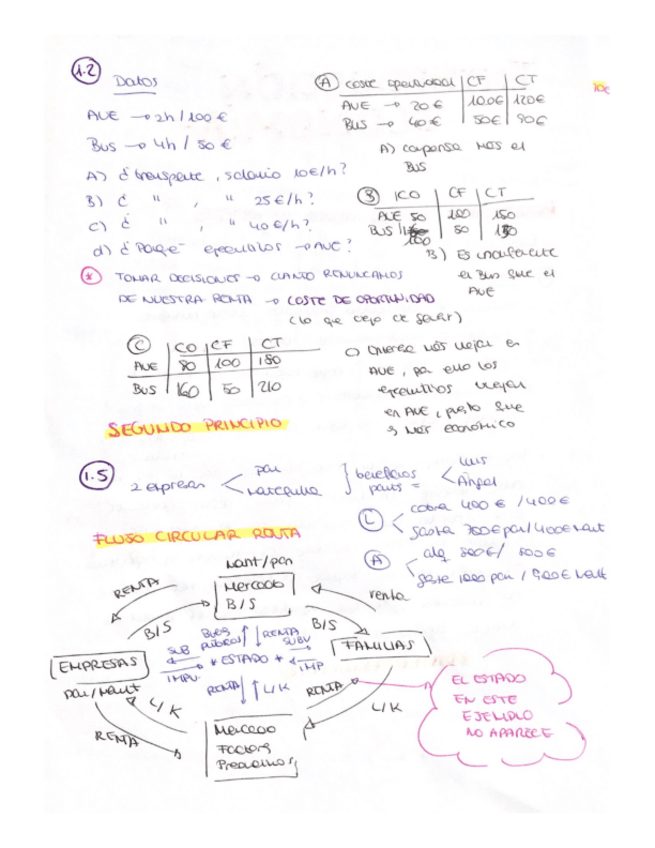 1.2 Datos
AVE → 2h / 100 €
Bus → 4h / 50 €
A) ¿transporte, salario 10€/h?
B) ¿ " , " 25€/h?
C) ¿ " , " 40€/h?
d) ¿Porqé ejecutivos → AVE?
* TOMAR DECISIONES → CUANDO RENUNCIAMOS
DE NUESTRA RENTA → COSTE DE OPORTUNIDAD
(lo que dejo de ganar)
A) coste oportunidad | CF | CT
AVE → 20€ | 100€ | 120€
Bus → 40€ | 50€ | 90€
10€
A) compensa más el
Bus
B) | CO | CF | CT
AVE 50 | 100 | 150
BUS 100 | 50 | 150
B) Es indiferente
el Bus que el
AVE
C) | CO | CF | CT
AVE | 80 | 100 | 180
BUS | 160 | 50 | 210
C) Interesa más viajar en
AVE, por ello los
ejecutivos viajan
en AVE, puesto que
es más económico
SEGUNDO PRINCIPIO
1.5 2 empresas < pan
mantequilla
} beneficios
parts = < Luis
Ángel
L < cobra 400 € / 400€
gasta 700€ pan / 400€ mant
A < alq 800€ / 500€
gasta 1000 pan / 500€ mant
FLUJO CIRCULAR RENTA
mant/pan
Mercado
B/S
RENTA
renta
B/S
B/S
EMPRESAS
pan/mant
FAMILIAS
Públicos
RENTA
SUB
SUBV
* ESTADO *
IMPU
IMP
RENTA
L/K
L/K
RENTA
L/K
RENTA
Mercado
Factores
EL ESTADO
EN ESTE
EJEMPLO
NO APARECE